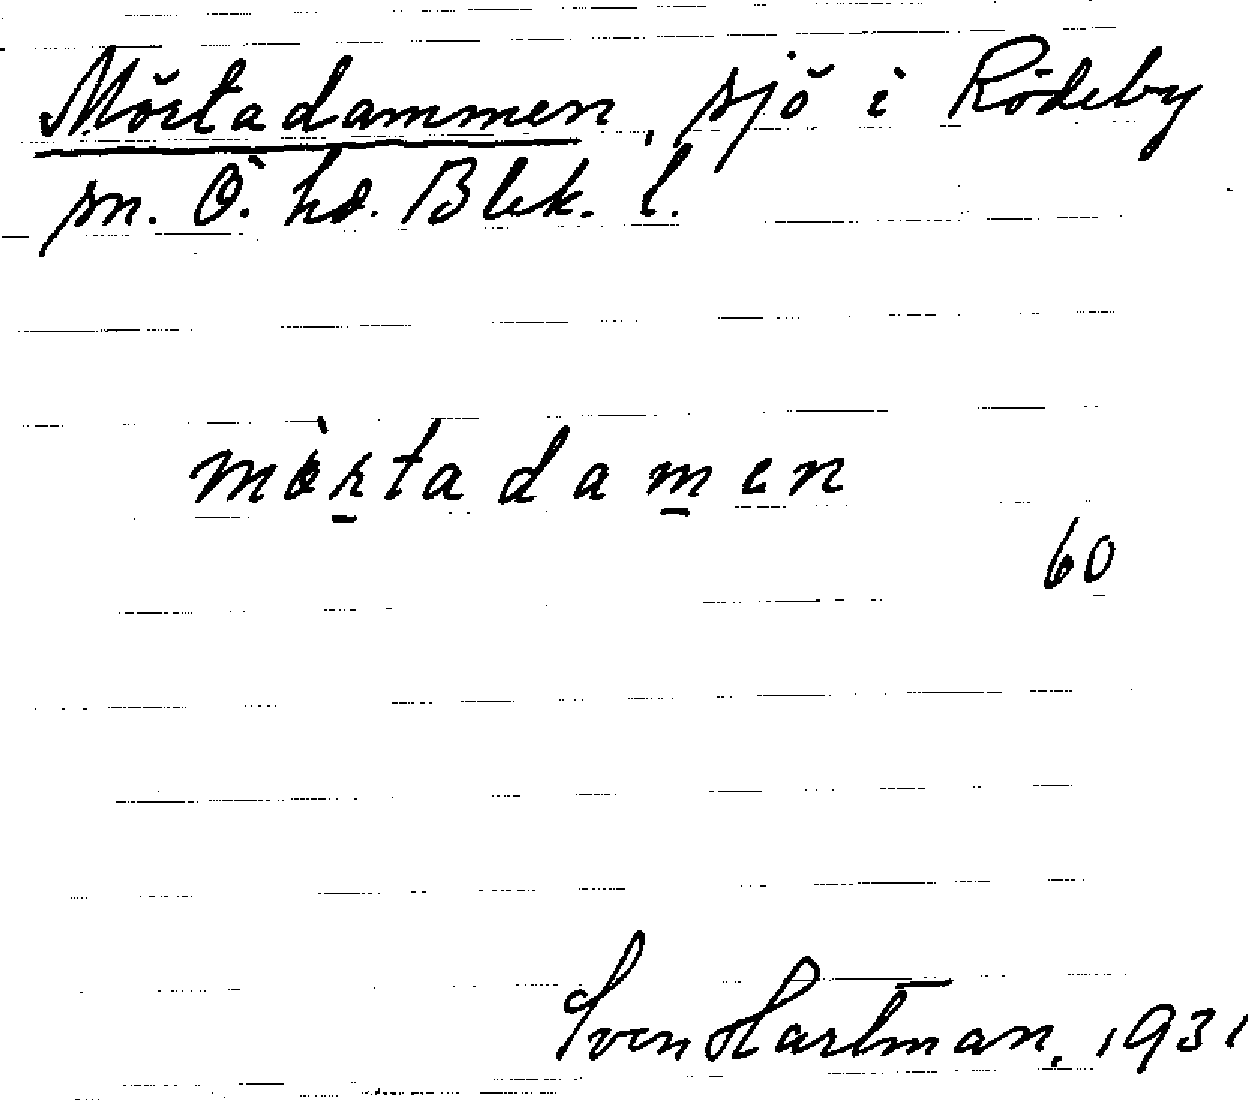 Mörtadammen, sjö i Rödeby
sn. Ö. hd. Blek. l.
mö̀ṟtadamen
60
Sven Hartman, 1931